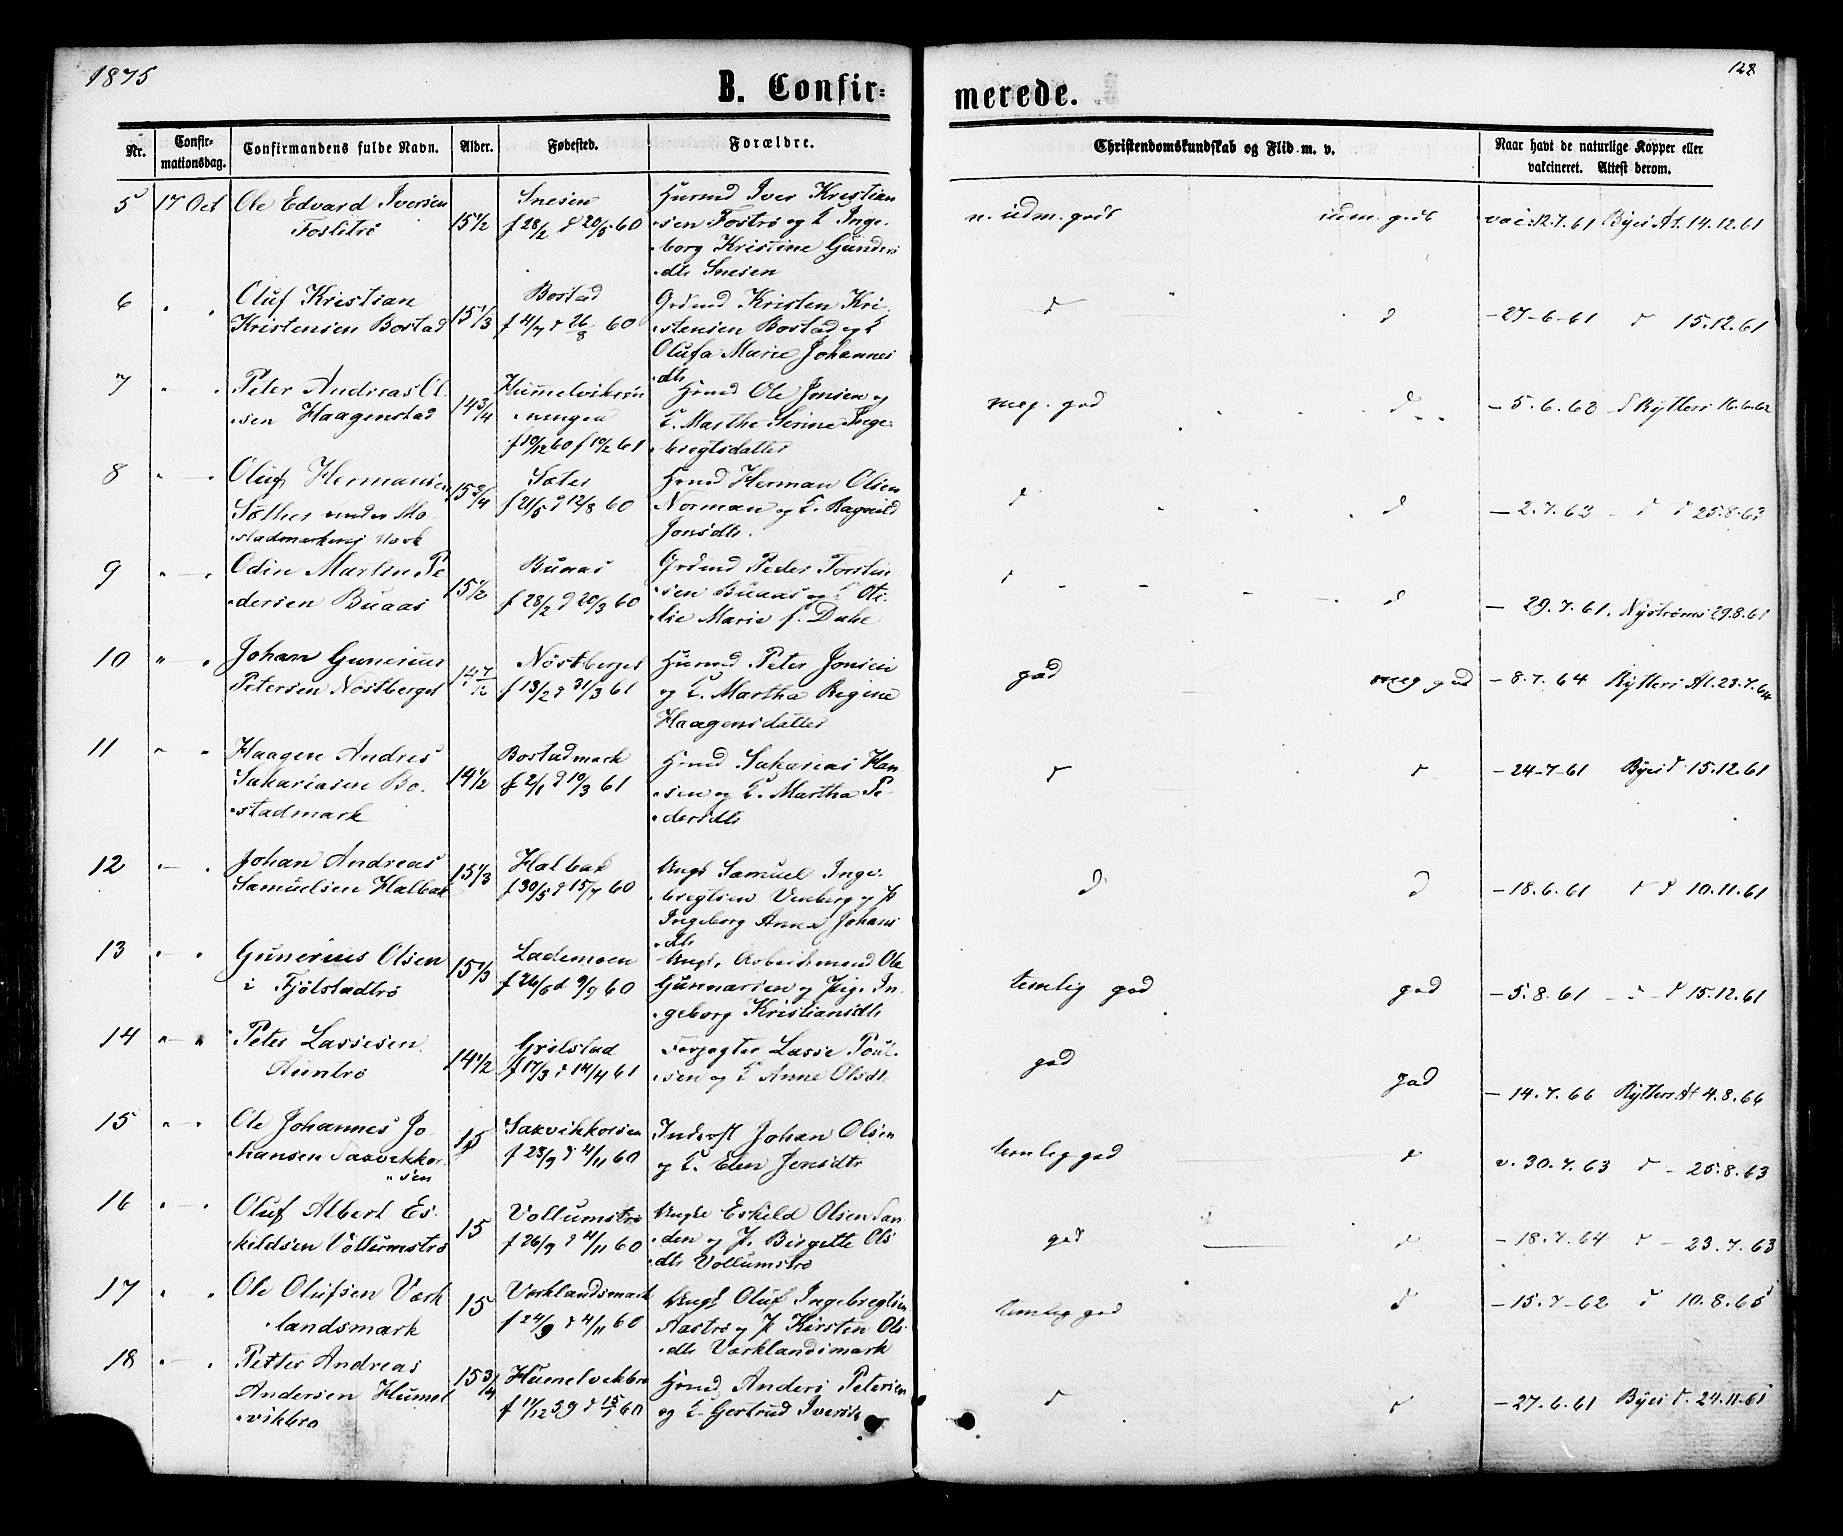 1875
128
B. Confir=
merede.
Nr.
Confir-
mationsdag.
Confirmandens fulde Navn.
Alder.
Fødested.
Forældre.
Christendomskundskab og Flid m. v.
Naar havt de naturlige Kopper eller
vakcineret. Attest derom.
5 17 Oct Ole Edvard Iversen 15 1/2 Snesen
f 28/2 d 20/5 60
Iver Kristian
sen Fostrø og E Inge
borg Kristine Gunders
dtr Snesen
6 Oluf Kristian
Kristensen Bostad 15 1/3 Bostad
f 4/7 d 26/8 60
Grdmd Kristen Kri
stensen Bostad og E
Olufa Marie Johannes
dtr
d d -27-6-61 d 15.12.61
7 Peter Andreas Ol
sen Haagenstad 14 3/4
f 10/12 60 f 10/2 61
Hsmd Ole Jonsen og
E. Marthe Serine Inge
bregtsdatter
meg. god d -5.6.62 Rytters 16.6.62
8 Oluf Hermansen
Sæther under Mo
stadmarkens Værk 15 3/4 Sæter
f 21/5 d 12/8 60
Hsmd Herman Olsen
Norman og E. Ragnild
Jonsdtr.
d d -2.7.63 d d 25.8.63
9 Odin Martin Pe
dersen Buaas 15 1/2 Buaas
f 28/2 d 20/3 60
Grdmd Peder Torstin
sen Buaas og E Ot
lie Marie f. Dahe
d d -29.7.61. Nystrøms 29.8.61
10 Johan Gunerius
Petersen Nøstberget 14 7/12 Nøstberget
f 13/2 d 31/3 61
Husmd Peter Jonsen
og E. Martha Regine
Haagensdatter
god meg god -8.7.64 Rytters At. 23.7.64
11 Haagen Andres
Sakariasen Bo
stadmark 14 1/2 Bostadmark
f 2/1 d 10/3 61
Hsmd Sakarias Han
sen og E. Martha Pe
dersdtr
d d -24-7-61 Byes d 15.12.61
12 Johan Andreas
Samuelsen Halbak 15 1/3 Halbak
f 30/5 d 15/7 60
Ungk Samuel Inge
bregtsen Venberg og P
Ingeborg Anna Johans
dtr
d d -18.6.61 d d 10.11.61
13 Gunerius Olsen
i Fjølstadtrø 15 1/3 Lademoen
f 26/6 d 9/9 60
Ungk. Arbeidsmand Ole
Gunnarsen og Pig. In
geborg Kristiansdtr
temlig god god -5.8.61 d d 15.12.61
14 Peter Lassesen
Auntrø 14 1/2 Grilstad
f 17/3 d 14/4 61
Forpagter Lasse Poul
sen og E Anne Olsdtr
god god -14.7.66 Rytters At 4.8.66
15 Ole Johannes Jo
hansen Saxvikkor
sen 15 Saxvikkorsen
f 23/9 d 4/11 60
Inderst Johan Olsen
og E. Elen Jensdtr
temlig god d v. 30.7.63 d - 25.8.63
16 Oluf Albert Es
kildsen Vollumstrø 15 Vollumstrø
f 26/9 d 4/11 60
Ungk Eskild Olsen San
den og P. Birgette Ols
dtr Vollumstrø
god d -18.7.64 d - 23.7.63
17 Ole Olufsen Værk
landsmark 15 Værklandsmark
f 24/9 d 4/11 60
Ungk Oluf Ingebregtsen
Aastrø og P Kirsten Ols
dtr Værklandsmark
temlig god d -15.7-62 d 10.8.65
18 Petter Andreas
Andersen Humel
vikbro 15 3/4 Humelvikbro
f 11/12 59 d 15/1 60
Hsmd Anders Petersen
og E Gertrud Iversdtr
d d -27.6.61 Byes d. 24.11.61